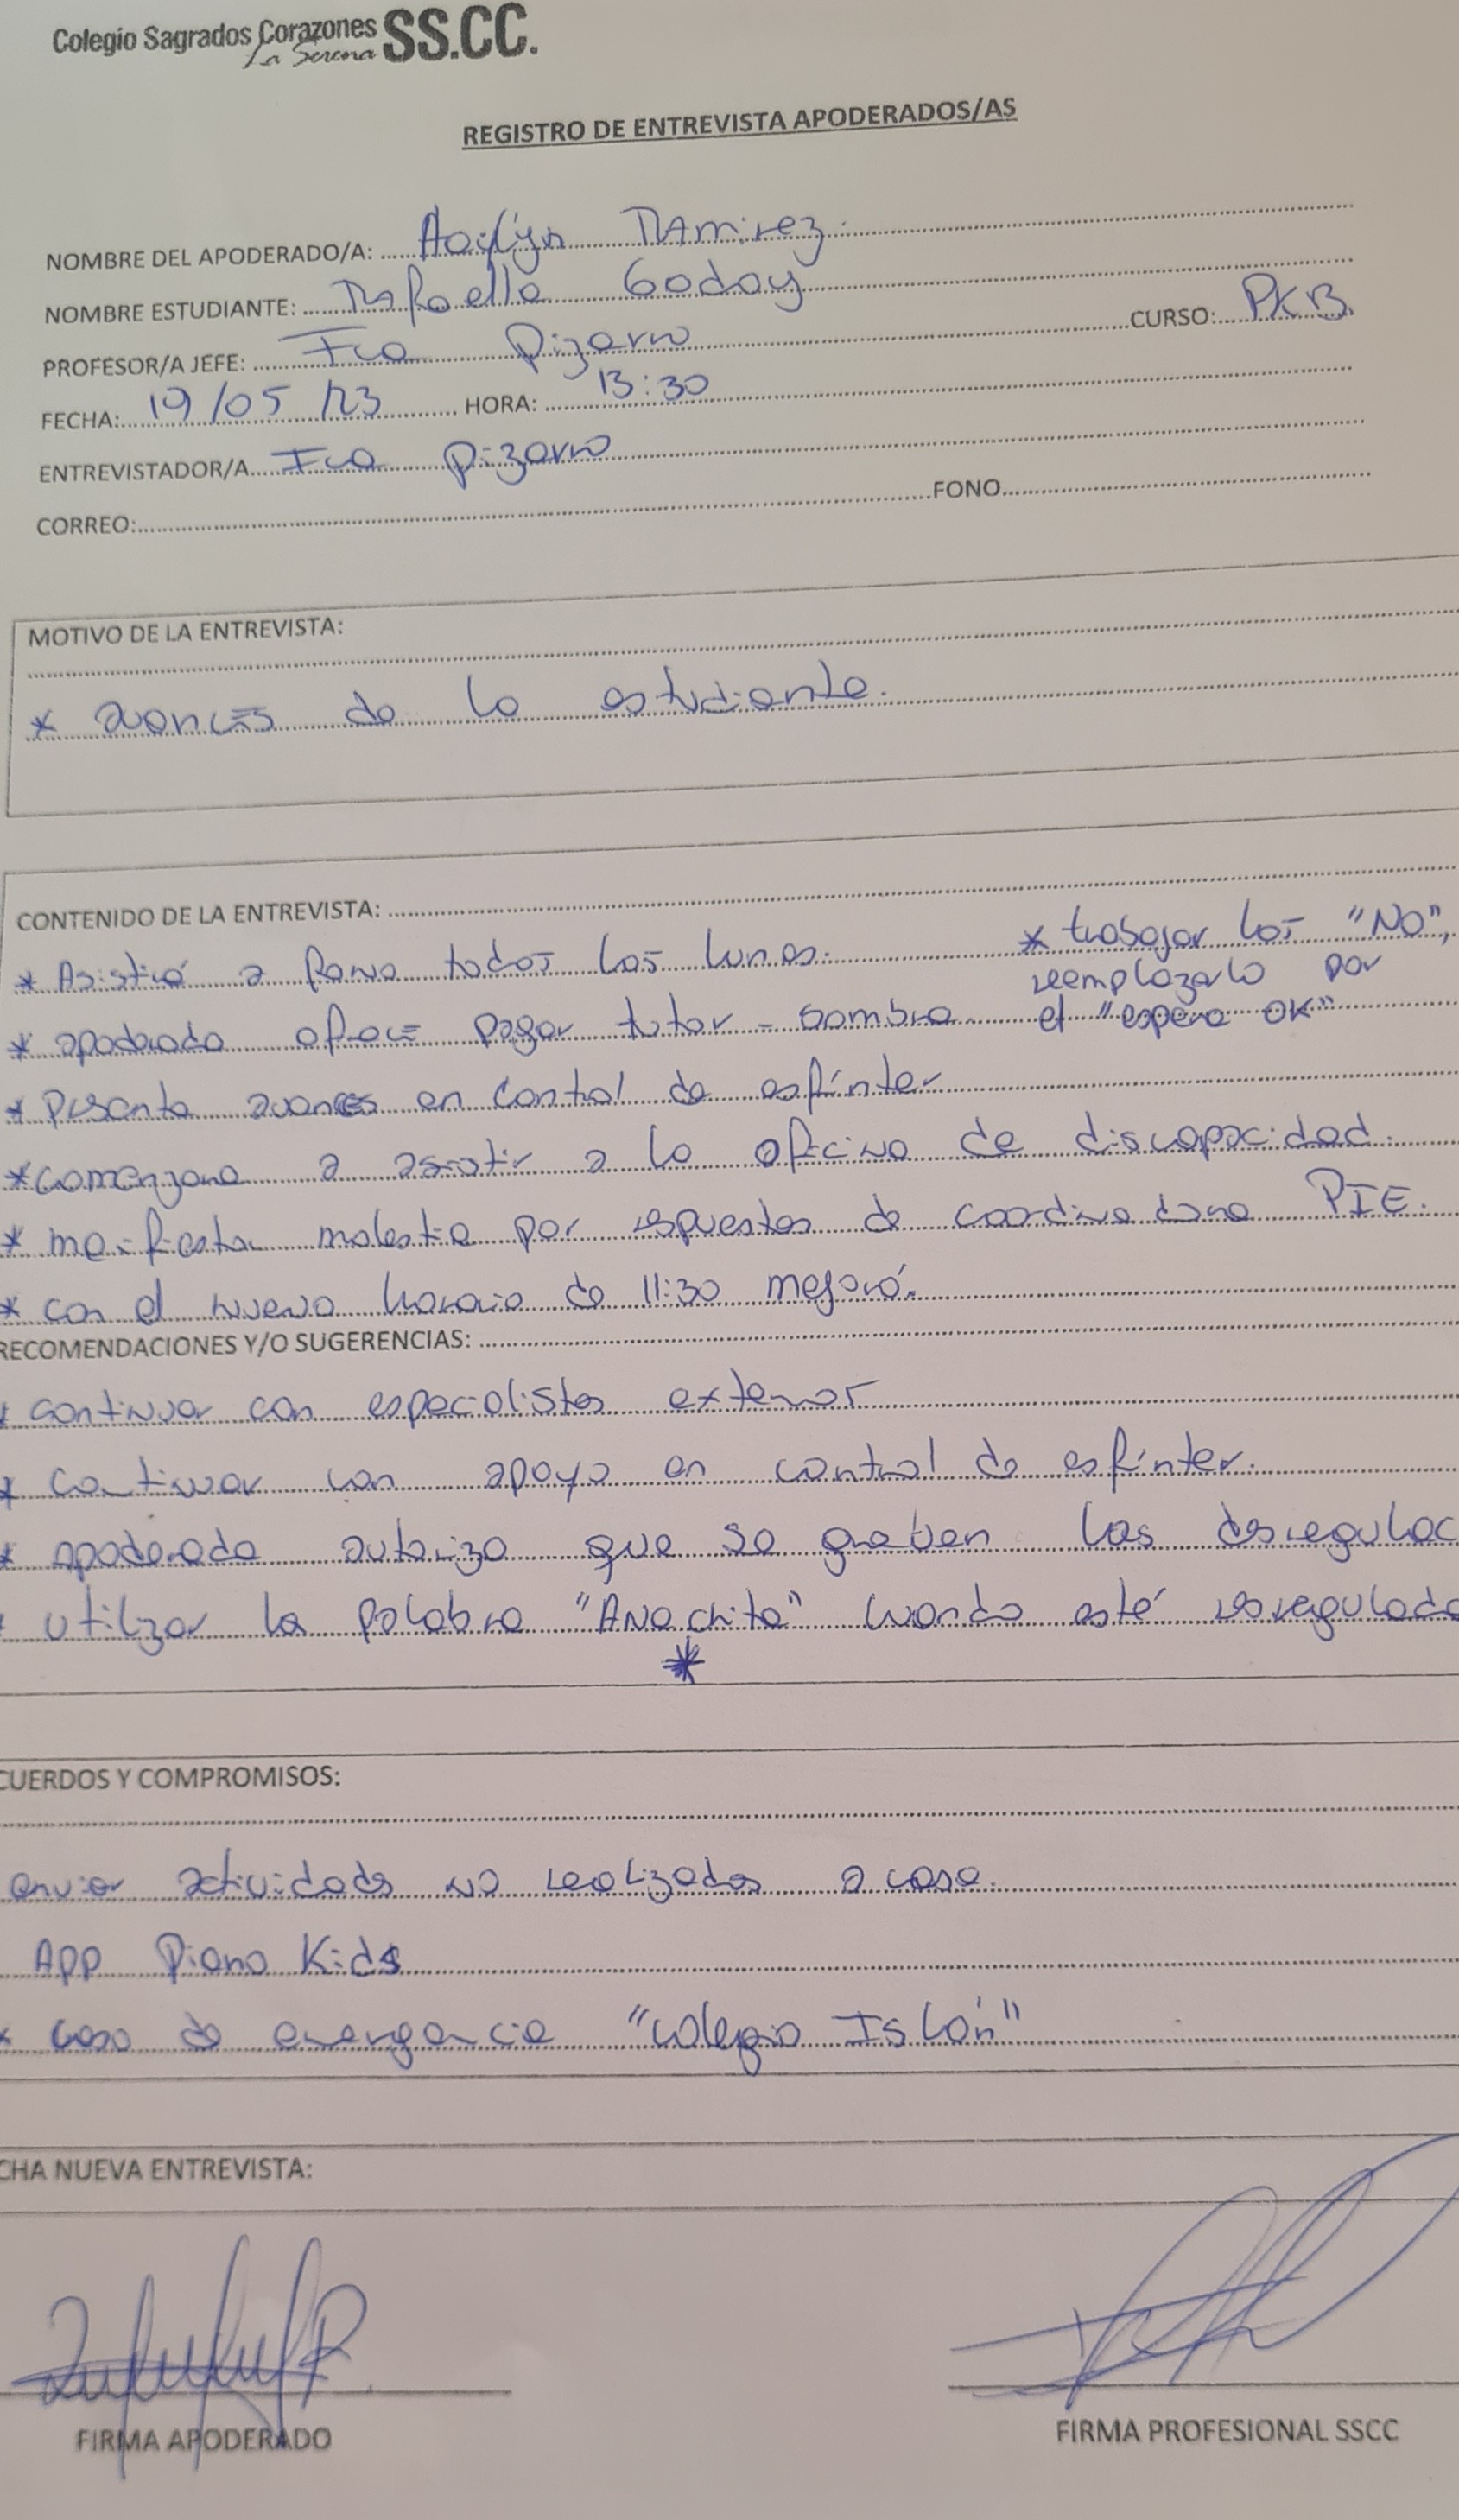 Colegio Sagrados Corazones SS.CC.
La Serena
REGISTRO DE ENTREVISTA APODERADOS/AS
NOMBRE DEL APODERADO/A: Ramirez
NOMBRE ESTUDIANTE: Rafaella Godoy
PROFESOR/A JEFE: Fca Pizarro CURSO: PKB
FECHA: 19/05/23 HORA: 13:30
ENTREVISTADOR/A Fca Pizarro
CORREO: FONO
MOTIVO DE LA ENTREVISTA:
* avances de la estudiante.
CONTENIDO DE LA ENTREVISTA:
* Asistirá a fono todos los lunes.
* apoderada ofrece pagar tutor - sombra
* Presenta avances en control de esfínter
* comenzara a asistir a la oficina de discapacidad.
* manifiesta molestia por respuestas de coordinadora PIE.
* con el nuevo horario de 11:30 mejoró.
* trabajar los "NO",
reemplazarlo por
el "espera OK"
RECOMENDACIONES Y/O SUGERENCIAS:
* continuar con especialistas
* continuar con apoyo en control de esfínter.
* apoderada autoriza que se graben las desregulac
* utilizar la palabra cuando esté
*
CUERDOS Y COMPROMISOS:
enviar actividades no realizadas a casa.
App Piano Kids
* caso de emergencia "colegio Islón"
CHA NUEVA ENTREVISTA:
FIRMA APODERADO FIRMA PROFESIONAL SSCC